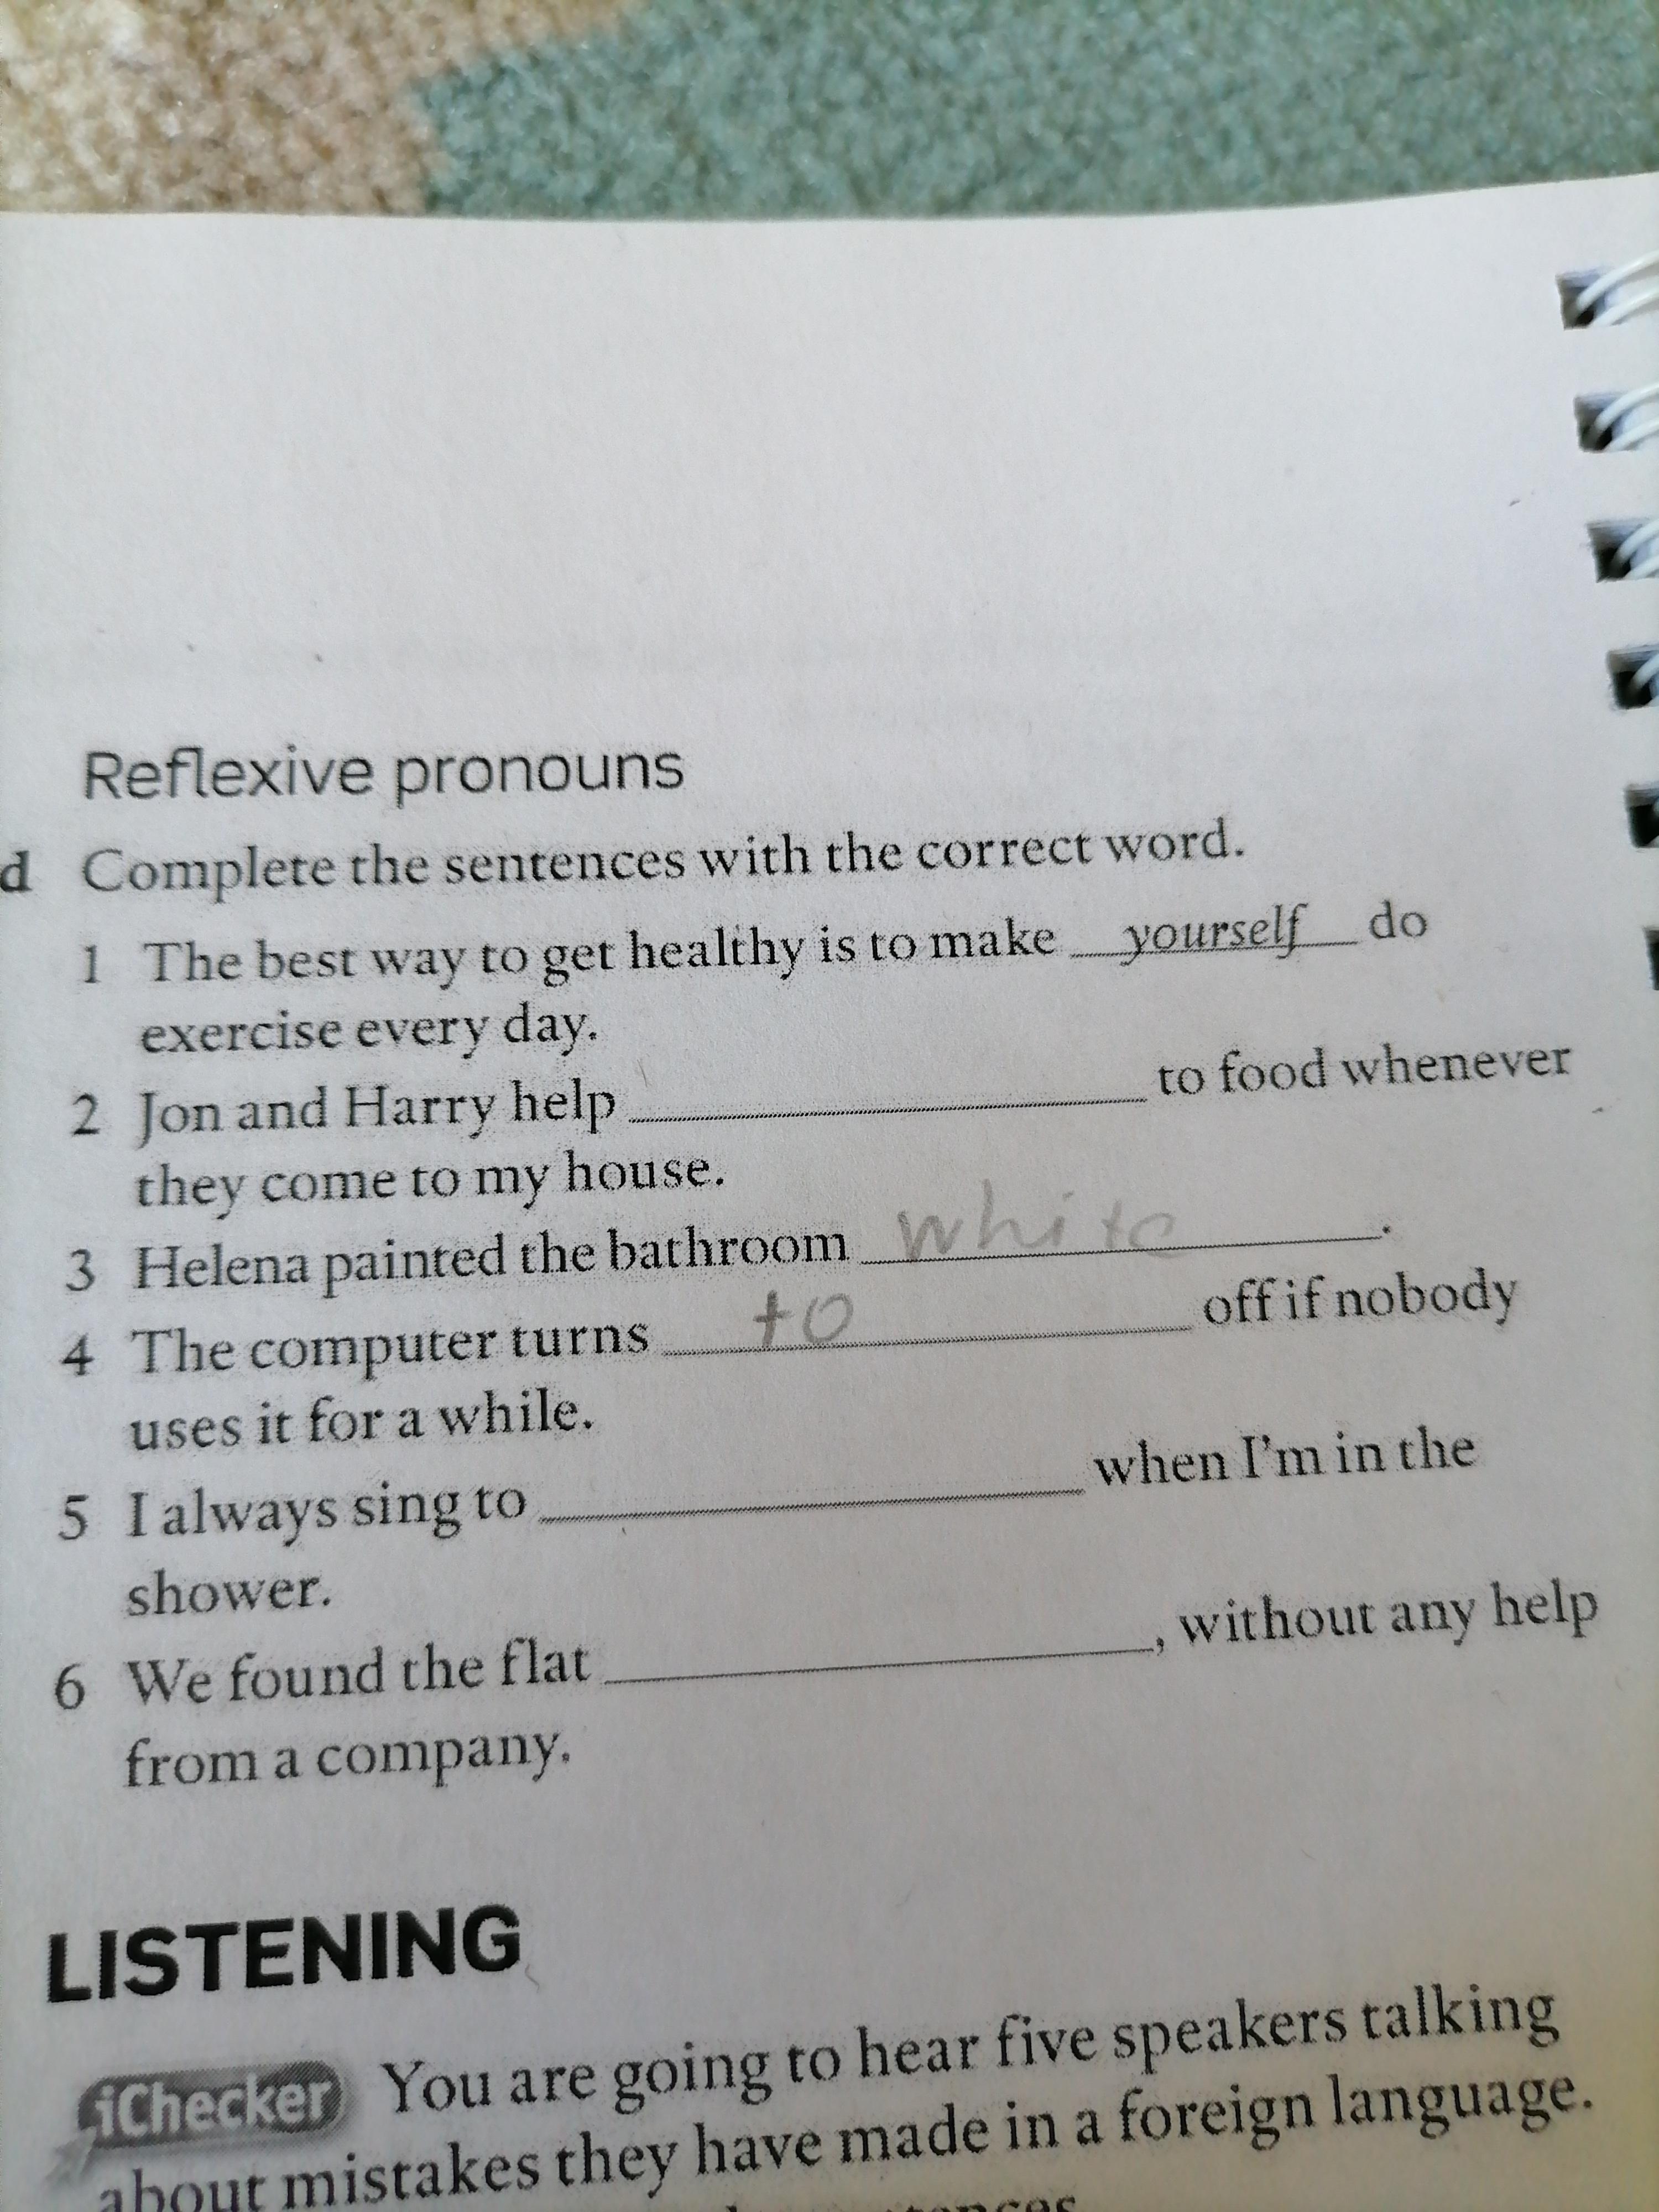 Reflexive pronouns
d Complete the sentences with the correct word.
1 The best way to get healthy is to make yourself do
exercise every day.
2 Jon and Harry help ____ to food whenever
they come to my house.
3 Helena painted the bathroom white.
4 The computer turns to off if nobody
uses it for a while.
5 I always sing to ____ when I'm in the
shower.
6 We found the flat ____, without any help
from a company.
LISTENING
iChecker You are going to hear five speakers talking
about mistakes they have made in a foreign language.